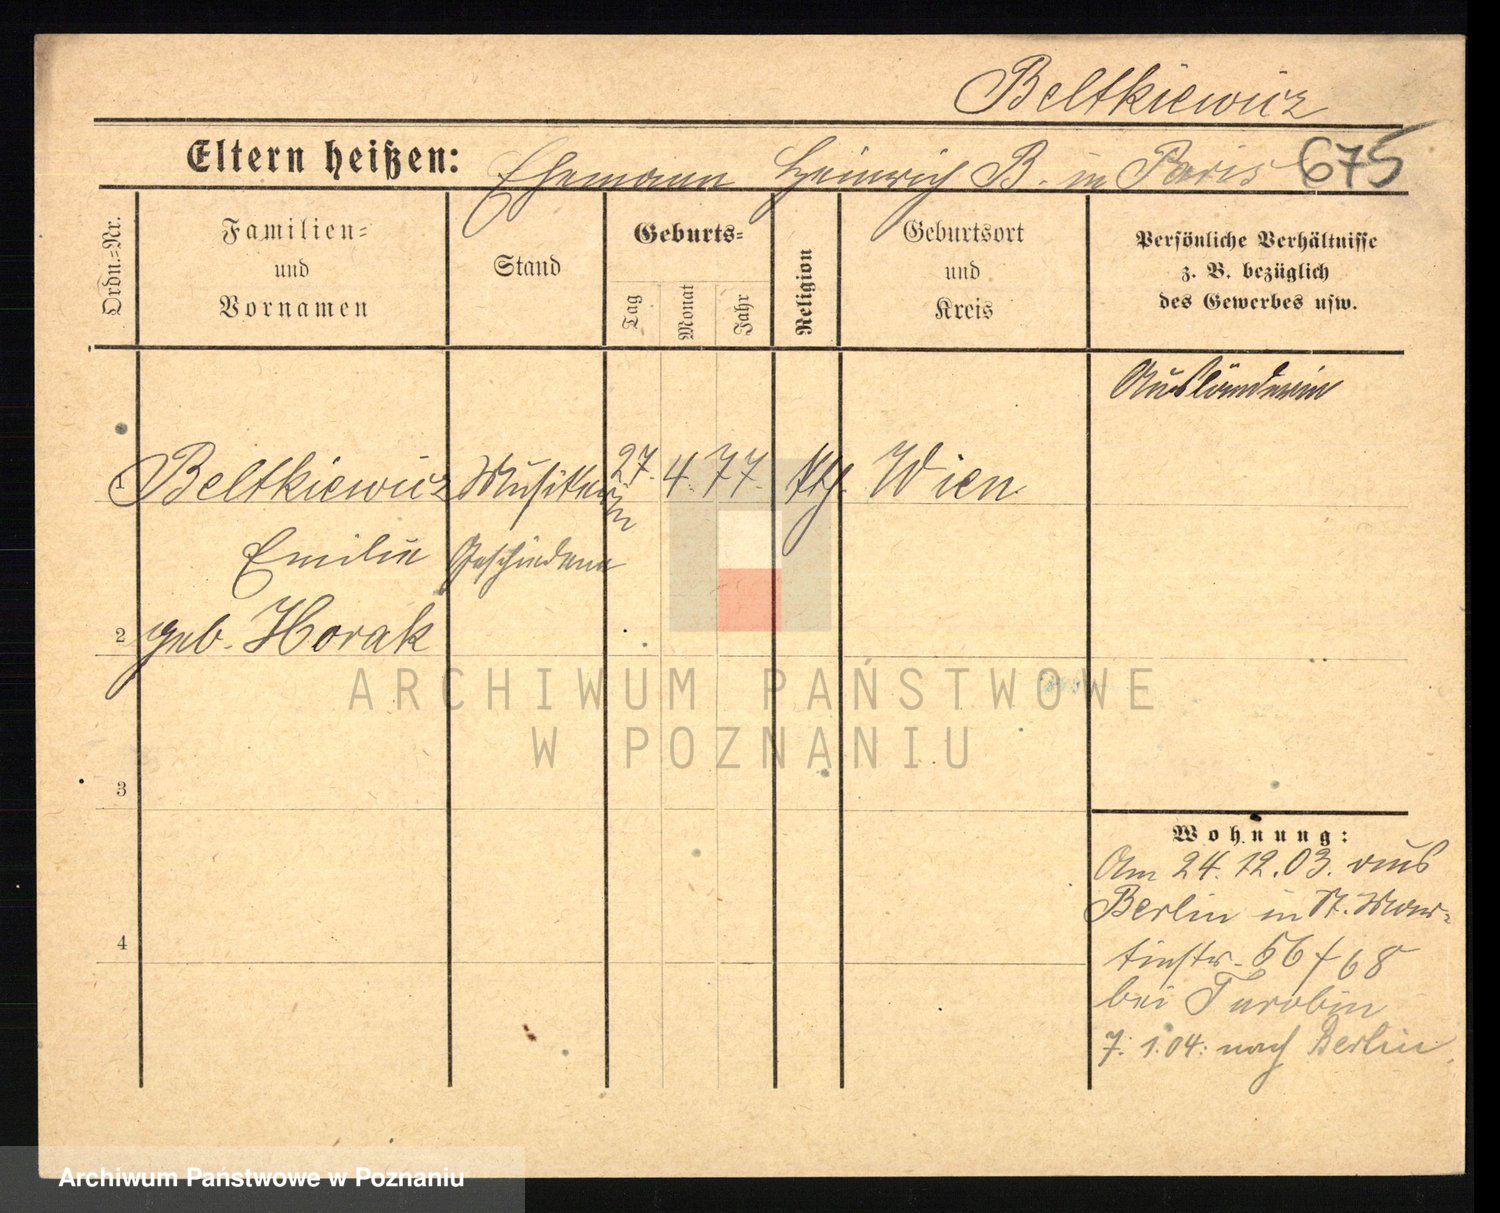 Beltkiewicz
Eltern heißen: Ehemann Heinrich B. in Paris 675
Ordn.=Nr.
Familien=
und
Vornamen
Stand
Geburts=
Tag
Monat
Jahr
Religion
Geburtsort
und
Kreis
Persönliche Verhältnisse
z. B. bezüglich
des Gewerbes usw.
Ausländerin
1 Beltkiewicz Musikerin 27. 4. 77. kth. Wien
Emilie Geschiedene
2 geb. Horak
ARCHIWUM PAŃSTWOWE
W POZNANIU
3
4
Wohnung:
Am 24. 12. 03. aus
Berlin in St. Mar-
tinstr. 66/68
bei Turobin
7. 1. 04. nach Berlin
Archiwum Państwowe w Poznaniu